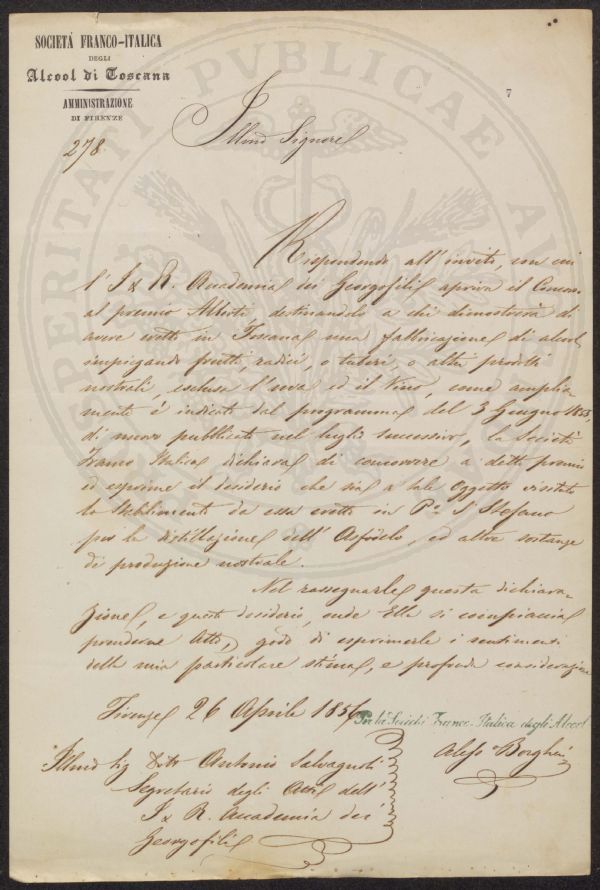 SOCIETÀ FRANCO-ITALICA
DEGLI
Alcool di Toscana
AMMINISTRAZIONE
DI FIRENZE
278
7
PROSPERITATI PVBLICAE AVGENDAE
Illmo Signore
Rispondendo all'invito, con cui
l'I e R. Accademia dei Georgofili apriva il Concorso
al premio Alberti, destinandolo a chi dimostrerà di
avere eretto in Toscana una fabbricazione di alcool
impiegando frutti, radici, o tuberi, o altri prodotti
nostrali esclusa l'uva ed il Vino, come amplia-
mente è indicato dal programma del 3 Giugno 1853,
di nuovo pubblicato nel luglio successivo, la Società
Franco Italica dichiara di concorrere a detto premio
ed esprime il desiderio che sia a tale Oggetto visitato
lo Stabilimento da essa eretto in Po S. Stefano
per la distillazione dell'Asfòdelo, ed altre sostanze
di produzione nostrale.
Nel rassegnarle questa dichiara-
zione, e questo desiderio, onde Ella si compiaccia
prenderne Atto, godo di esprimerle i sentimenti
della mia particolare stima, e profonda considerazione
Firenze 26 Aprile 1856
Per la Società Franco-Italica degli Alcool
Borghi
Illmo Sig Antonio Salvagnoli
Segretario degli Atti dell'
I e R. Accademia dei
Georgofili